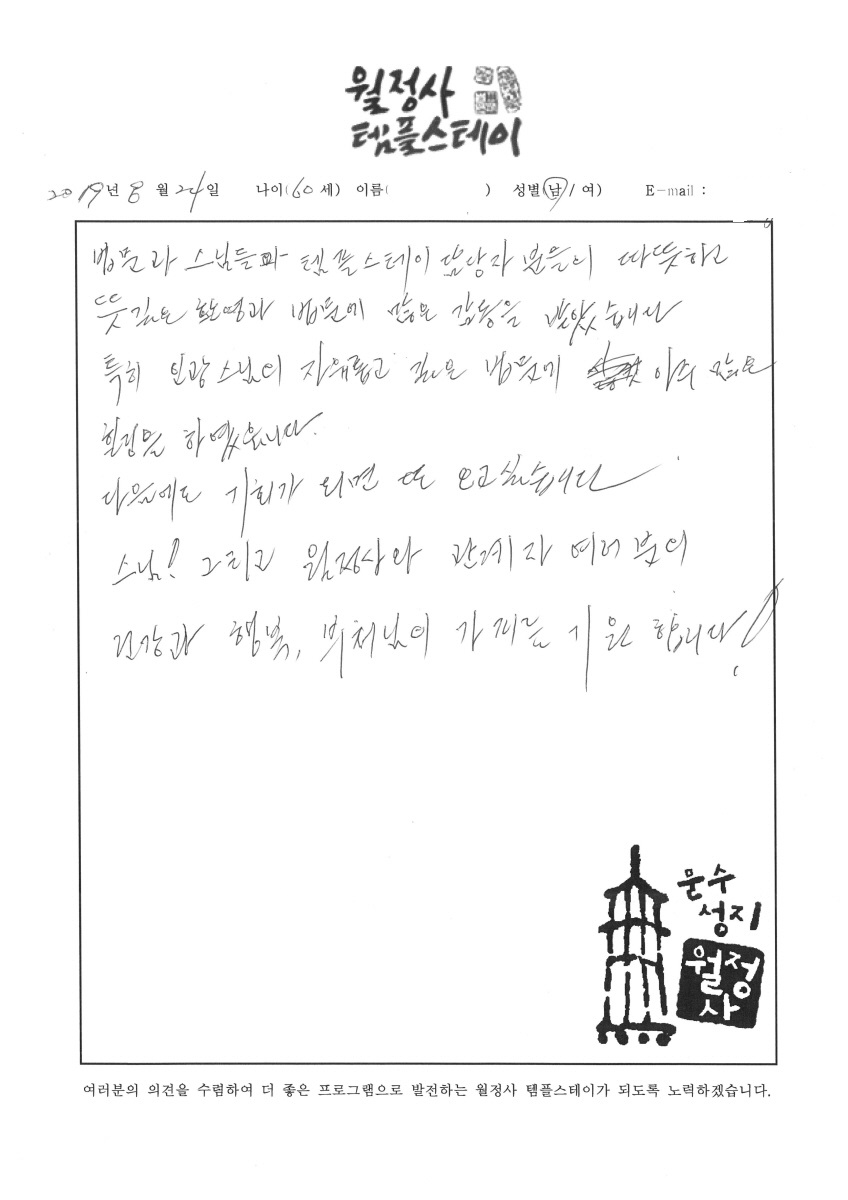 월정사
템플스테이
2019년 8월 24일 나이(60세) 이름( ) 성별(남/여) E-mail :
법문과 스님들과 템플스테이 담당자 분들의 따뜻하고
뜻깊은 환영과 법문에 많은 감동을 받았습니다
특히 인광스님의 자애롭고 깊은 법문에 아주 많은
힐링을 하였습니다.
다음에도 기회가 되면 또 오고싶습니다.
스님! 그리고 월정사와 관계자 여러분의
건강과 행복, 부처님의 가피를 기원 합니다!
문수
성지
월정
사
여러분의 의견을 수렴하여 더 좋은 프로그램으로 발전하는 월정사 템플스테이가 되도록 노력하겠습니다.